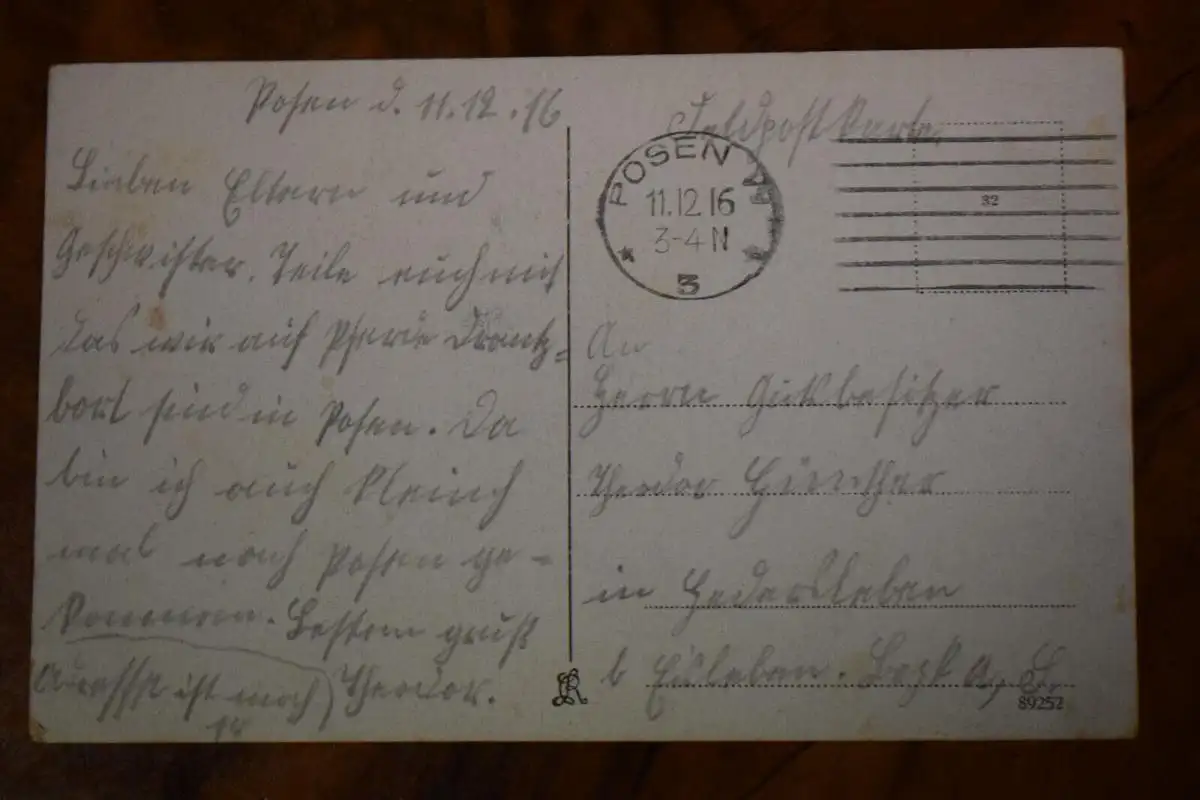 Posen d. 11.12.16
Lieben Eltern und
Geschwister. Teile euch mit
das wir auf Pferde Trantz=
bort sind in Posen. Da
bin ich auch
mal nach Posen ge-
kommen. Besten gruß
Theodor.
Adresse ist noch
Feldpostkarte
POSEN
11.12.16
3-4 N
* 3 *
32
An
Herrn Gutsbesitzer
Theodor Günther
in Hedersleben
b Eisleben. Bezk a, S.
89252